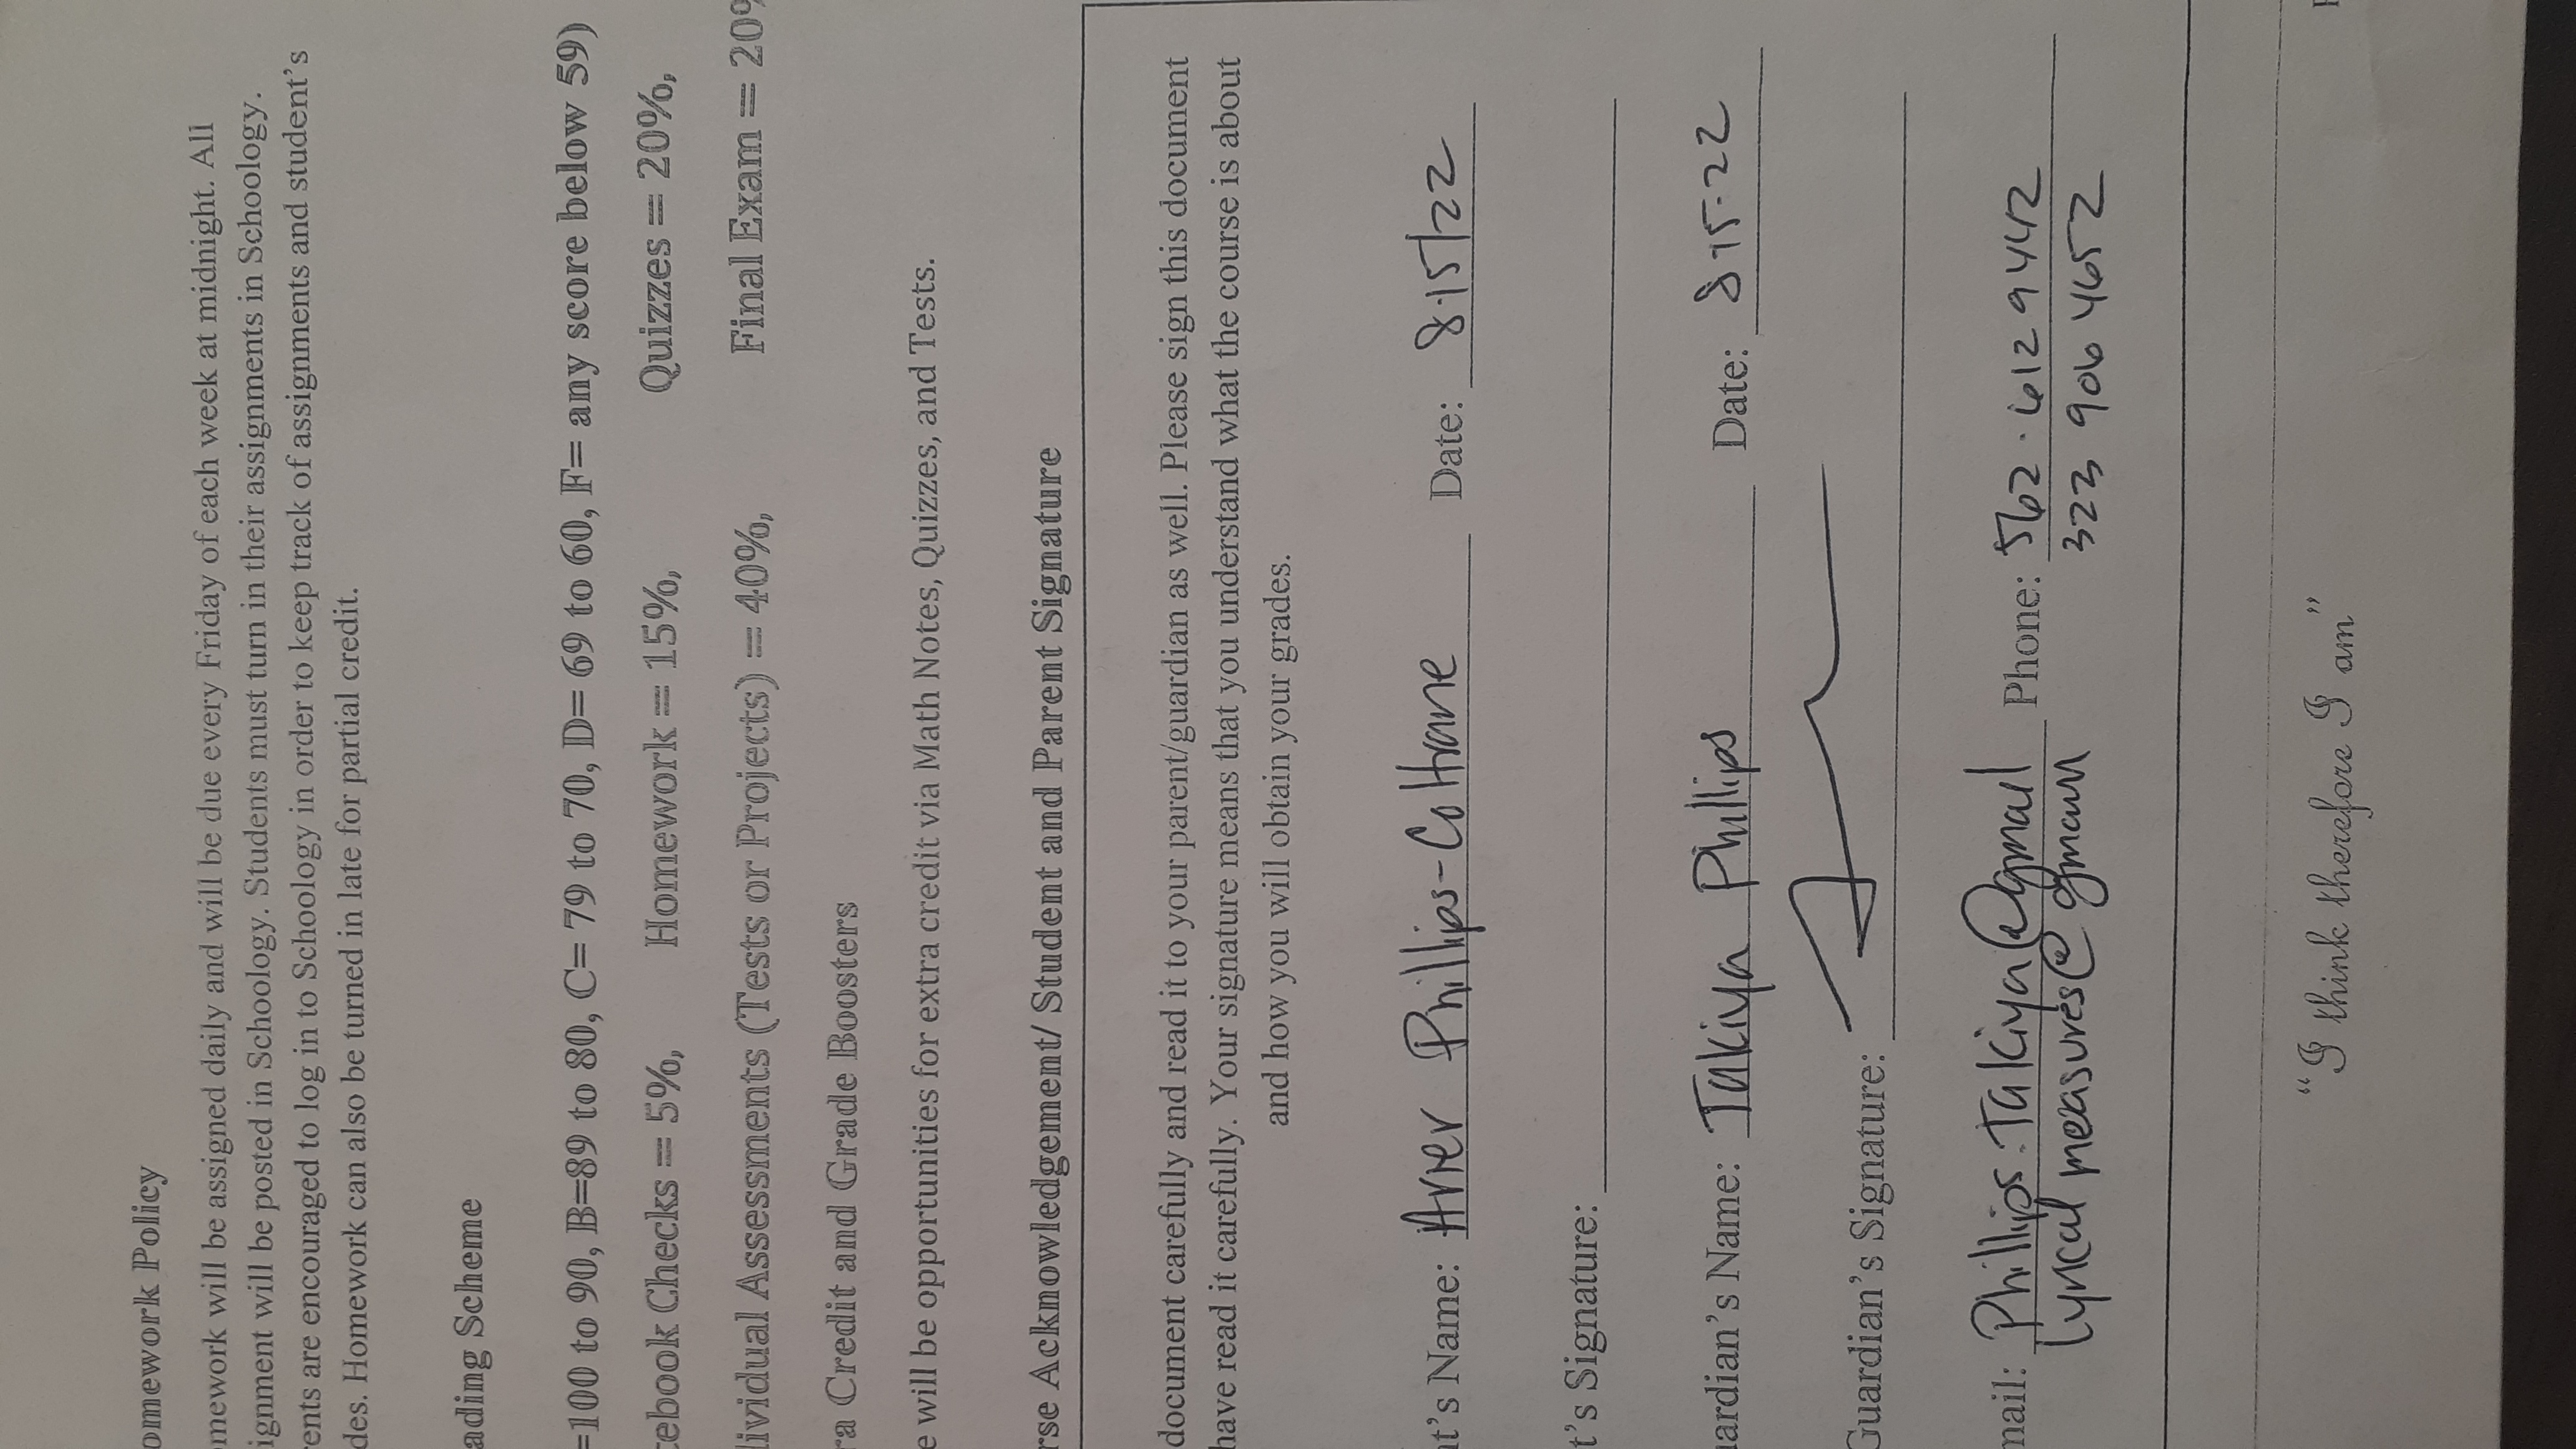 omework Policy
mework will be assigned daily and will be due every Friday of each week at midnight. All
ignment will be posted in Schoology. Students must turn in their assignments in Schoology.
ents are encouraged to log in to Schoology in order to keep track of assignments and student's
des. Homework can also be turned in late for partial credit.
ading Scheme
=100 to 90, B=89 to 80, C= 79 to 70, D= 69 to 60, F= any score below 59)
tebook Checks = 5%, Homework = 15%, Quizzes = 20%,
lividual Assessments (Tests or Projects) = 40%, Final Exam = 20%
ra Credit and Grade Boosters
e will be opportunities for extra credit via Math Notes, Quizzes, and Tests.
rse Acknowledgement/ Student and Parent Signature
document carefully and read it to your parent/guardian as well. Please sign this document
have read it carefully. Your signature means that you understand what the course is about
and how you will obtain your grades.
t's Name: Arier Phillips-Coltrane Date: 8·15/22
t's Signature:
ardian's Name: Takiya Phillips Date: 8-15-22
Guardian's Signature:
mail: Phillips.Takiya@gmail Phone: 562·612 9442
lyrical measures@gmail 323 906 4652
"I think therefore I am"